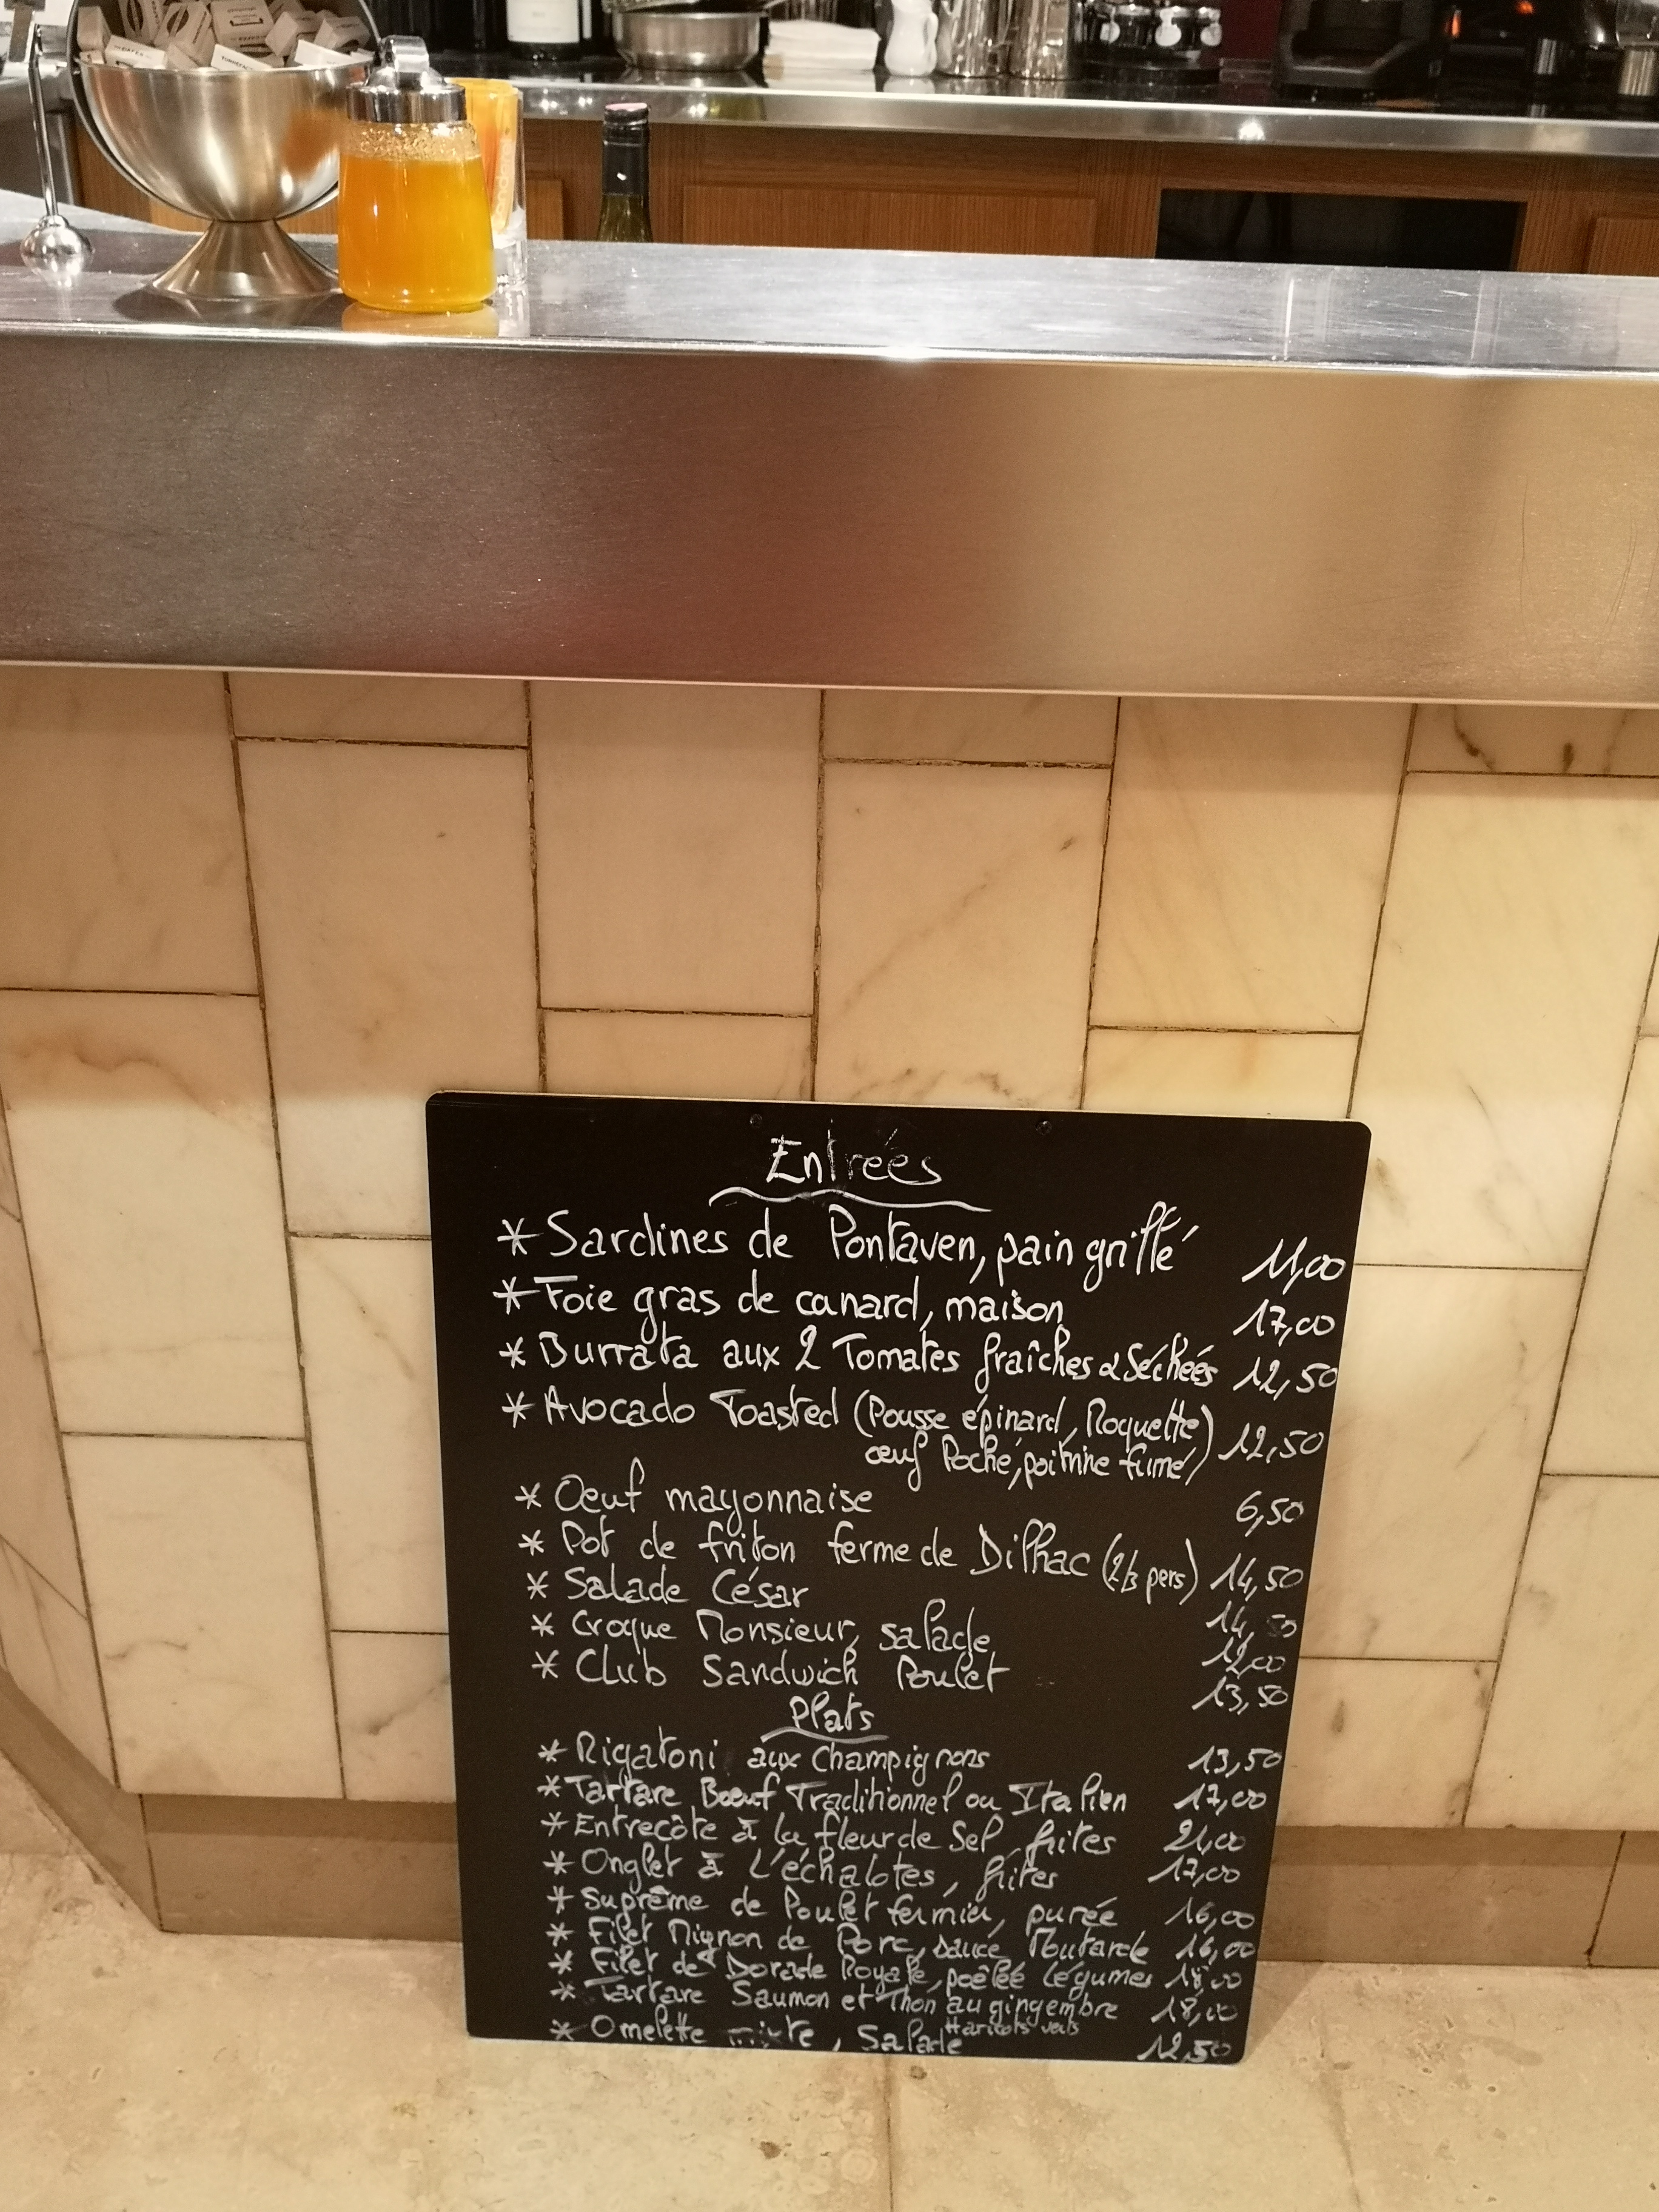 Entrées
* Sardines de Pontaven, pain grillé 11,00
* Foie gras de canard, maison 17,00
* Burrata aux 2 Tomates fraîches & Séchées 12,50
* Avocado Toasted (Pousse épinard, Roquette) 12,50
œuf Poché, poitrine fumé)
* Oeuf mayonnaise 6,50
* Pot de friton ferme de Dilhac (2/3 pers) 14,50
* Salade César 14,50
* Croque Monsieur, salade 12,00
* Club Sandwich Poulet 13,50
Plats
* Rigatoni aux Champignons 13,50
* Tartare Bœuf Traditionnel ou Italien 17,00
* Entrecôte à la fleur de Sel, frites 21,00
* Onglet à L'échalotes, frites 17,00
* Suprême de Poulet fermier, purée 16,00
* Filet Mignon de Porc, sauce Moutarde 16,00
* Filet de Dorade Royale, poêlée Légumes 18,00
* Tartare Saumon et Thon au gingembre 18,00
Haricots verts
* Omelette mixte, Salade 12,50